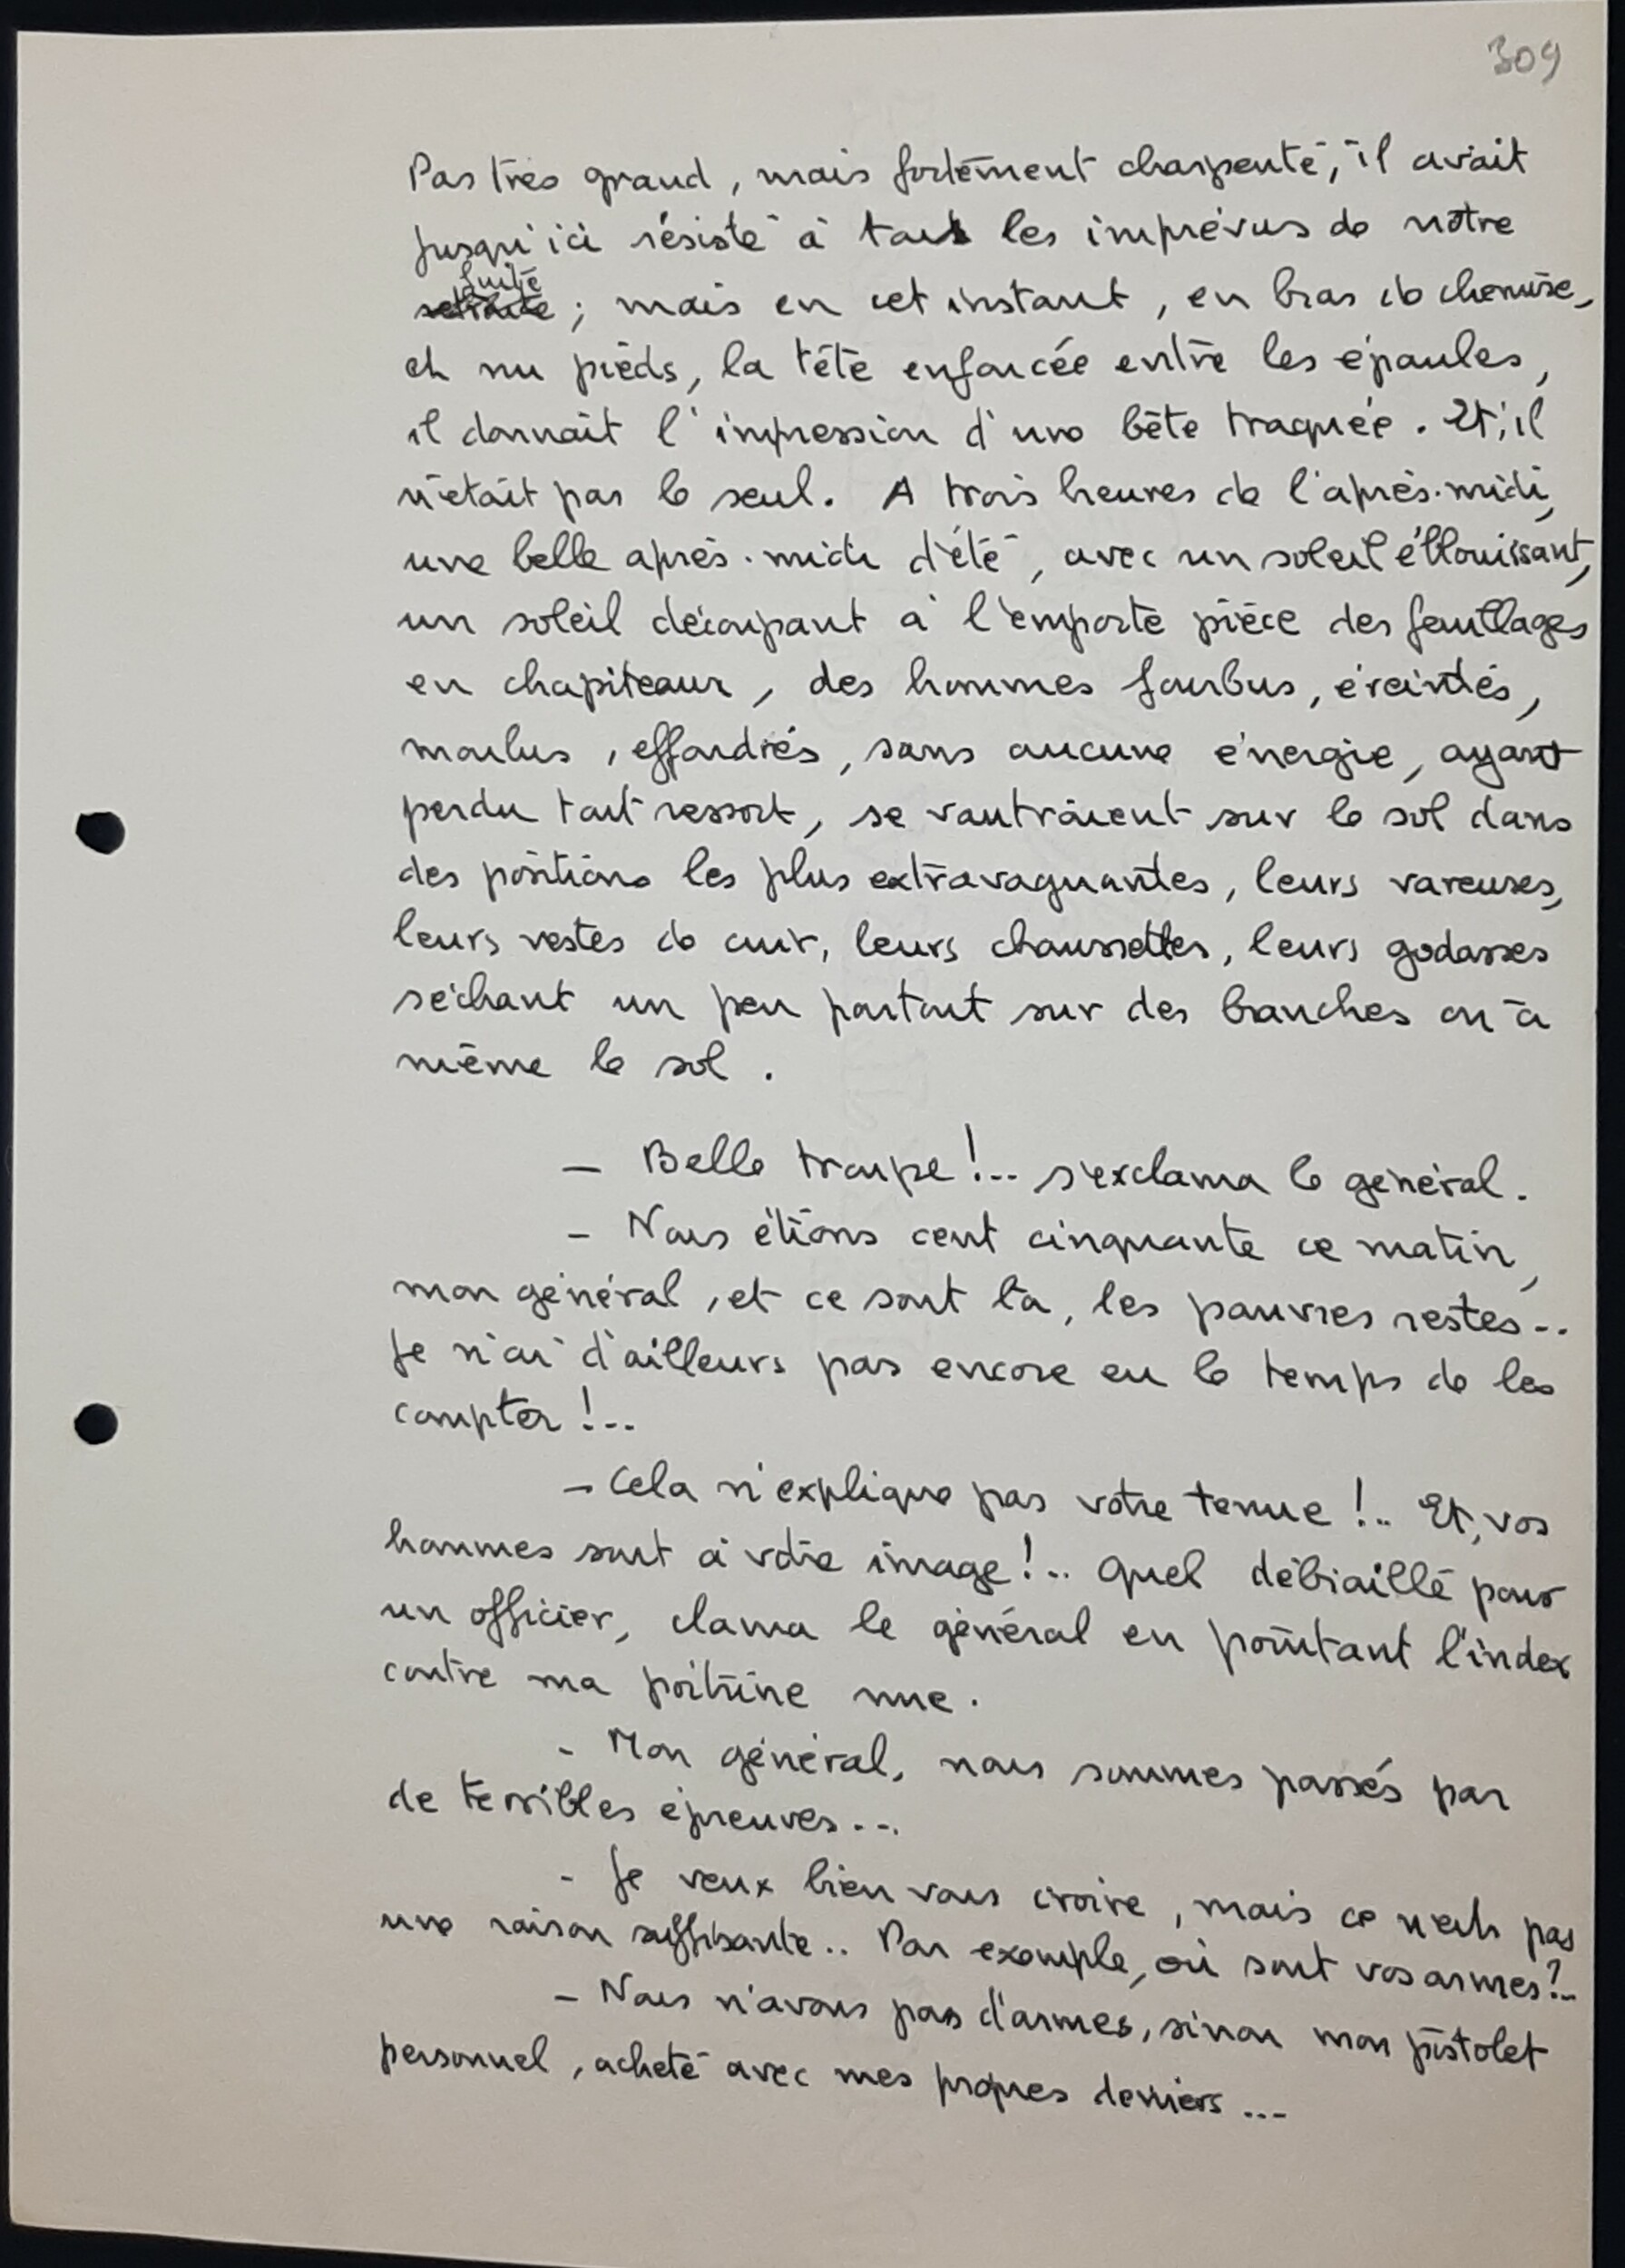 309
Pas très grand, mais fortement charpenté, il avait
jusqu'ici résisté à tous les imprévus de notre
fuite
retraite ; mais en cet instant, en bras de chemise,
et nu pieds, la tête enfoncée entre les épaules,
il donnait l'impression d'une bête traquée. Et, il
n'était pas le seul. A trois heures de l'après-midi,
une belle après-midi d'été, avec un soleil éblouissant,
un soleil découpant à l'emporte pièce des feuillages
en chapiteaux, des hommes fourbus, éreintés,
moulus, effondrés, sans aucune énergie, ayant
perdu tout ressort, se vautraient sur le sol dans
des positions les plus extravaguantes, leurs vareuses,
leurs vestes de cuir, leurs chaussettes, leurs godasses
séchant un peu partout sur des branches ou à
même le sol.
— Belle troupe !.. s'exclama le général.
— Nous étions cent cinquante ce matin,
mon général, et ce sont là, les pauvres restes...
Je n'ai d'ailleurs pas encore eu le temps de les
compter !..
— Cela n'explique pas votre tenue !.. Et, vos
hommes sont à votre image !.. Quel débraillé pour
un officier, clama le général en pointant l'index
contre ma poitrine nue.
- Mon général, nous sommes passés par
de terribles épreuves...
- Je veux bien vous croire, mais ce n'est pas
une raison suffisante.. Par exemple, où sont vos armes ?..
— Nous n'avons pas d'armes, sinon mon pistolet
personnel, acheté avec mes propres deniers...